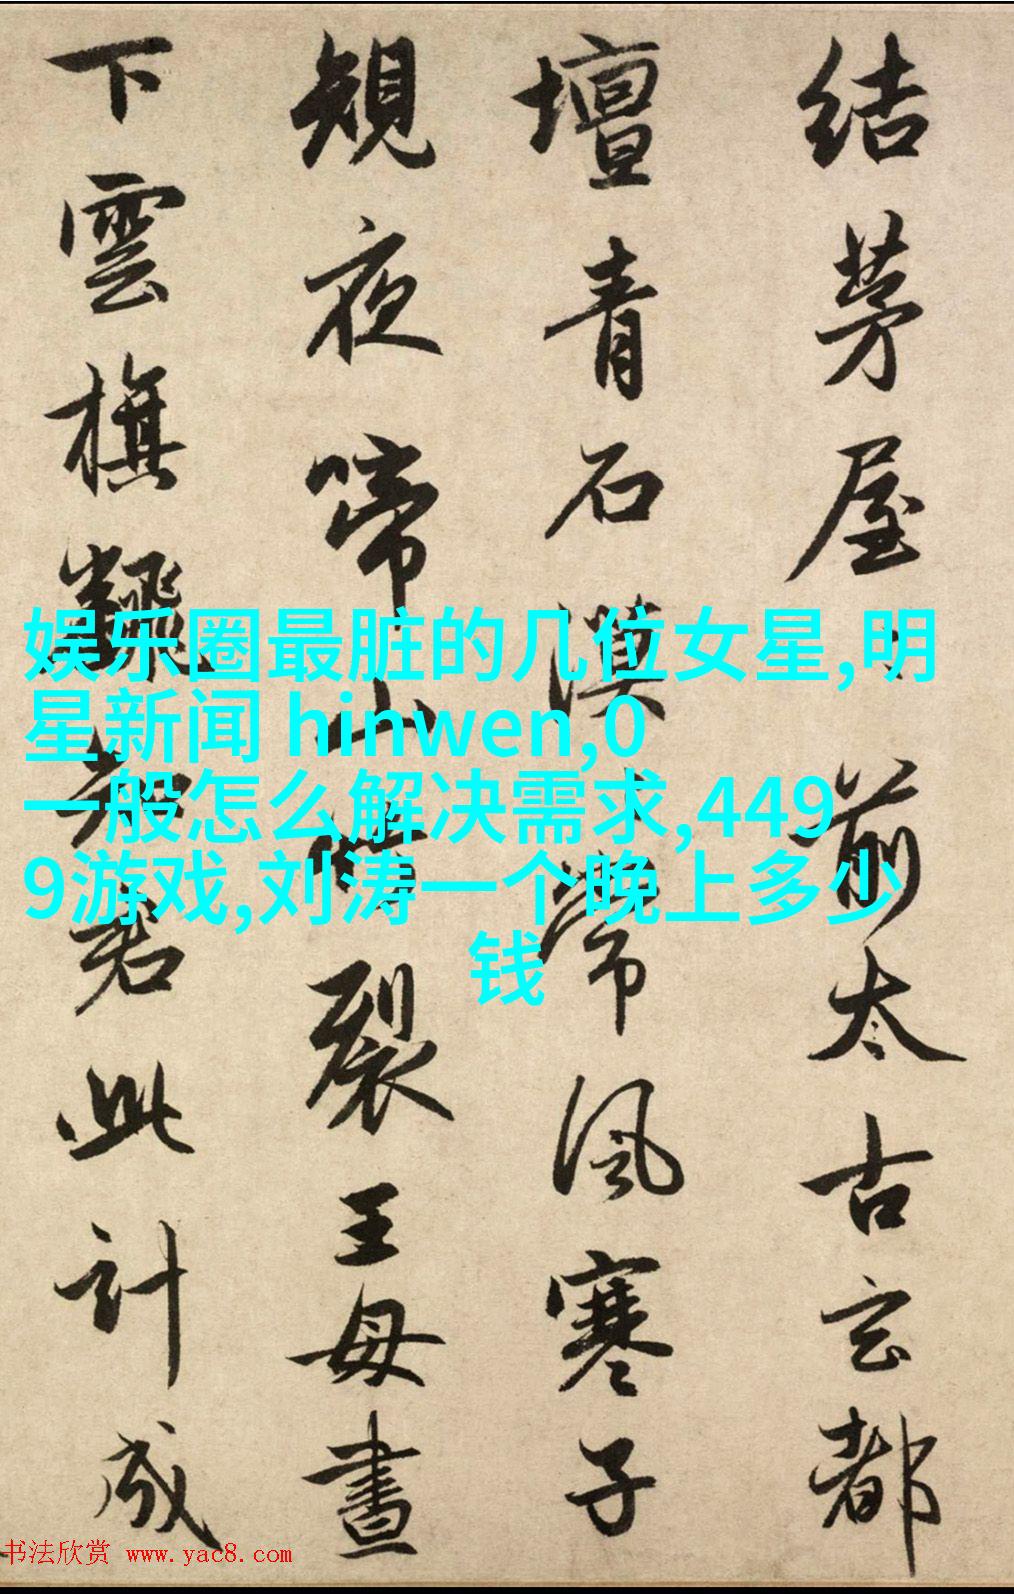 结茅屋、前太古玄都
壇青石漠、常風寒子
規夜啼山竹裂王母晝
下雲旗飜知君此計成
娱乐圈最脏的几位女星,明
星新闻 hinwen,0
一般怎么解决需求,449
9游戏,刘涛一个晚上多少
钱
书法欣赏 www.yac8.com